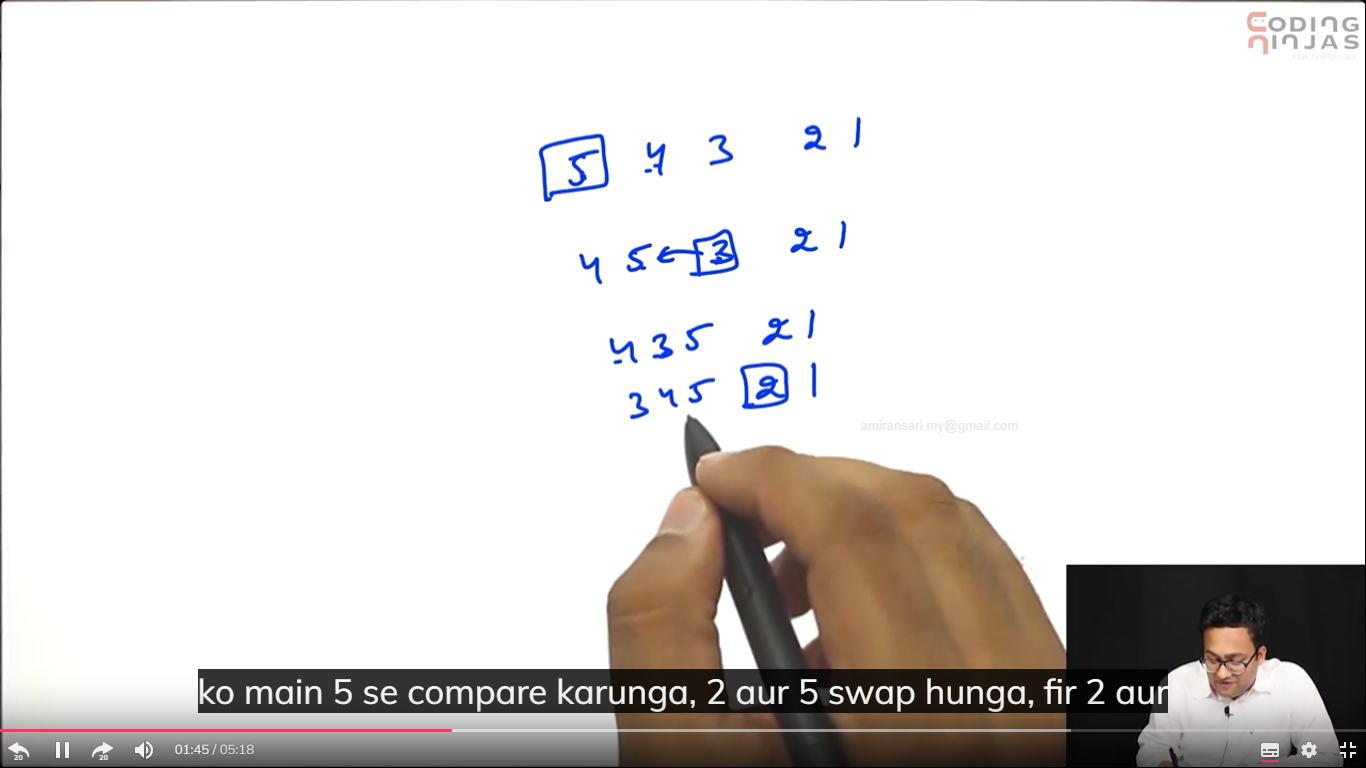 CODING
NINJAS
5 4 3 2 1
4 5 3 2 1
4 3 5 2 1
3 4 5 2 1
amiransari.my@gmail.com
ko main 5 se compare karunga, 2 aur 5 swap hunga, fir 2 aur
20 20 01:45 / 05:18